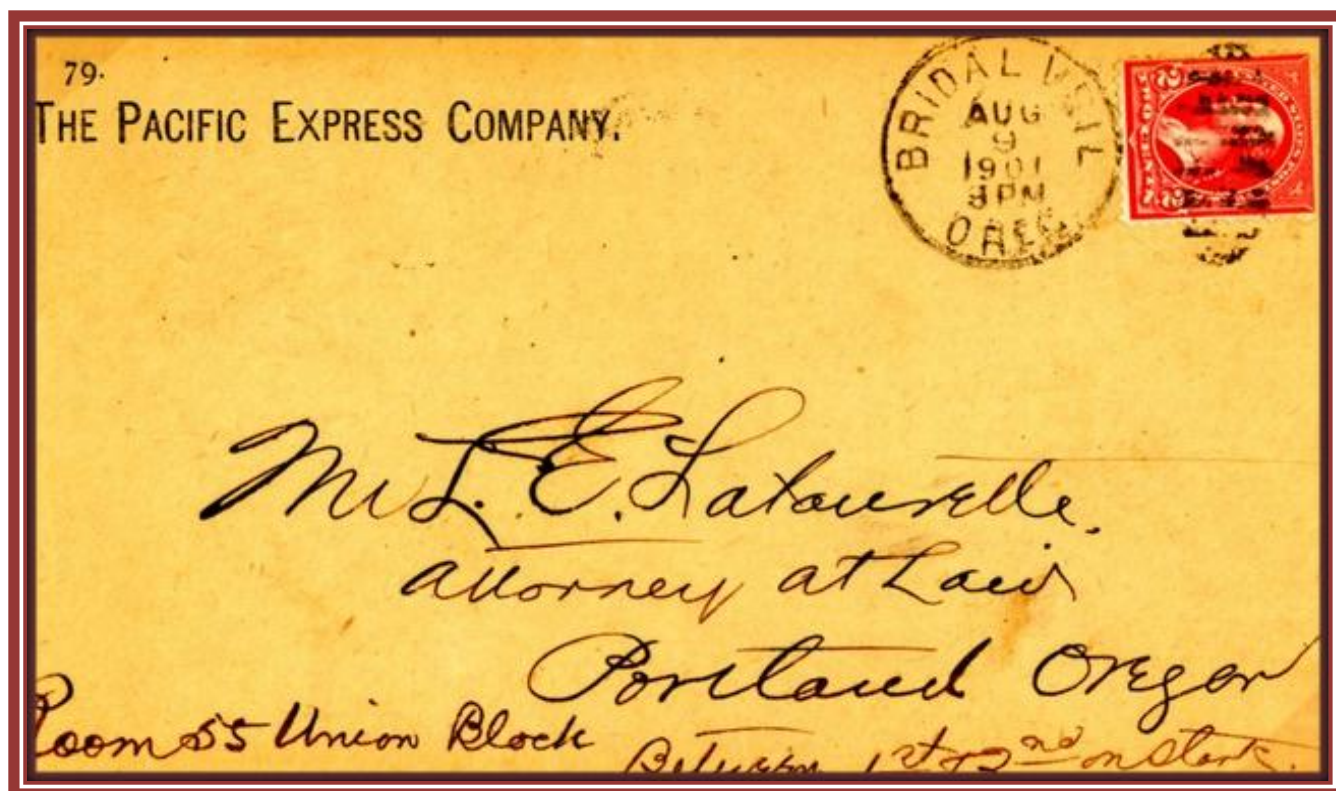 79.
THE PACIFIC EXPRESS COMPANY.
BRIDAL VEIL
AUG
9
1901
PM
OREG
Mr L. E. Latourelle.
Attorney at Law
Portland Oregon
Room 55 Union Block
Between 1st & 2nd on Stark.